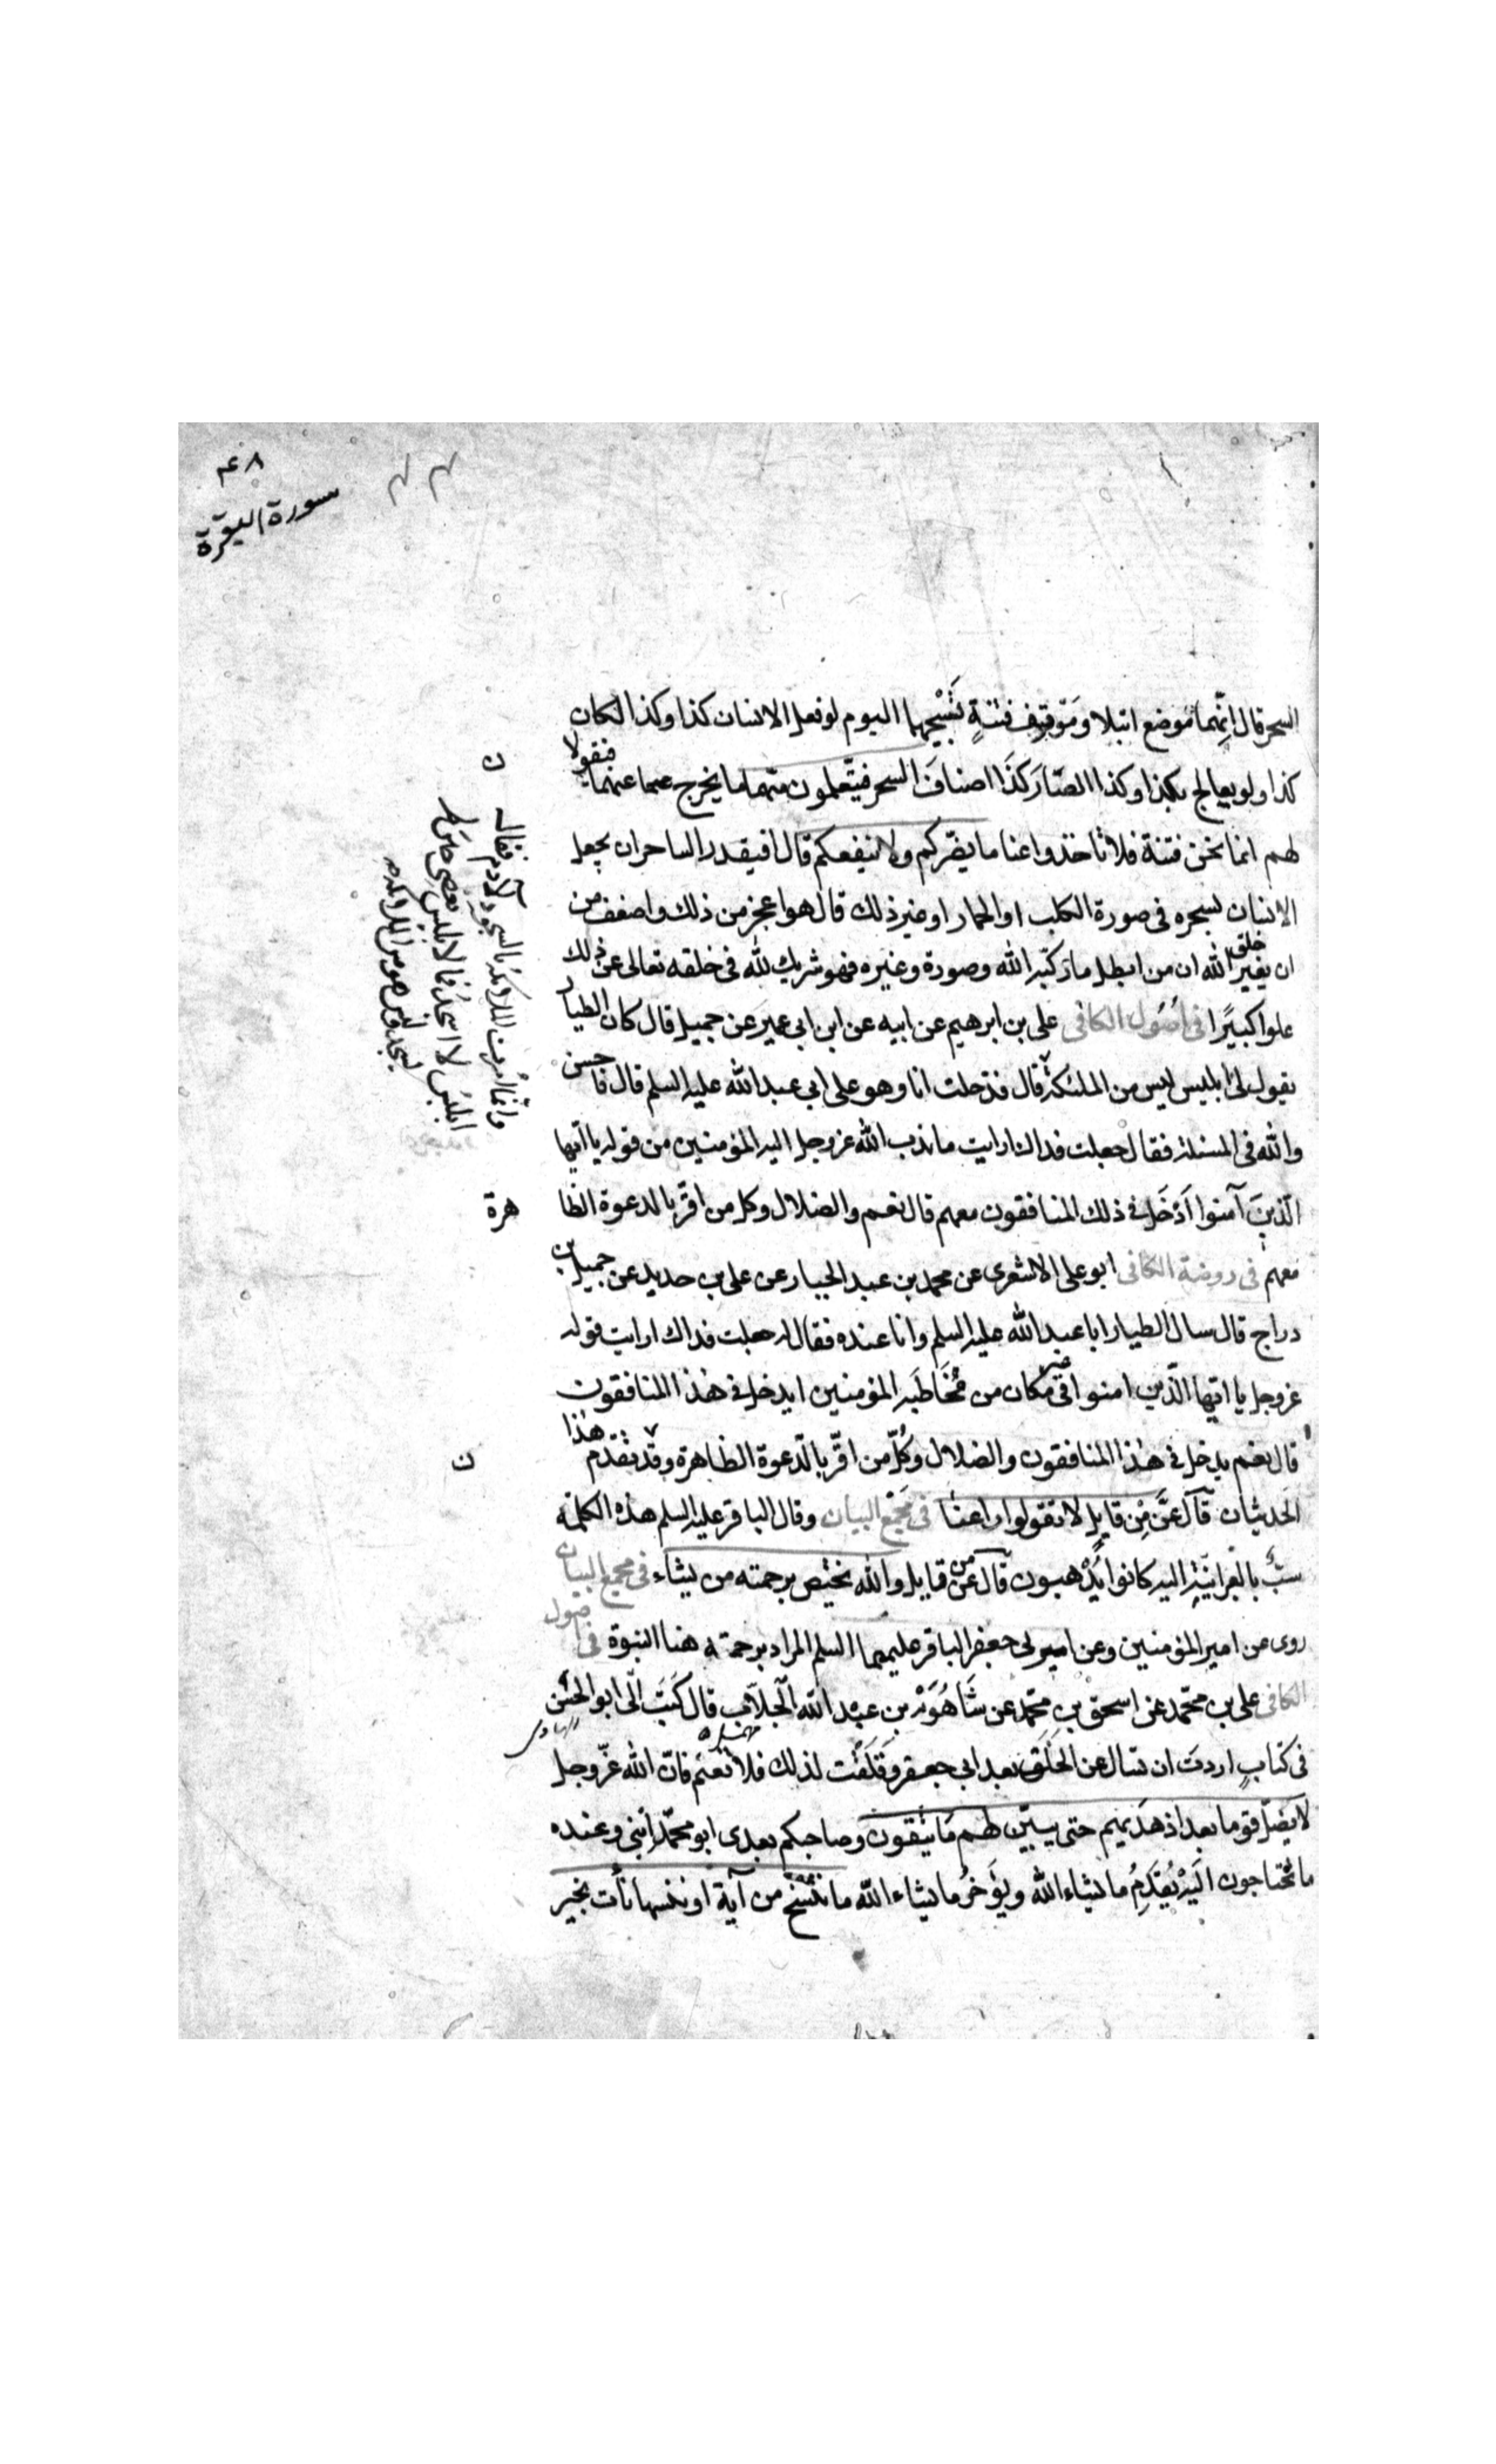 ٤٨
سورة البقرة
السحر قال انهما موضع ابتلا وموقف فتنةٍ تسبيحهما اليوم لو فعل الانسان كذا وكذا لكان
كذا ولو يعالج بكذا وكذا الصار كذا اصناف السحر فيتعلمون منهما ما يخرج عنهما فيقولا
لهم انما نحن فتنة فلا تاخذوا عنا ما يضركم ولا ينفعكم قال افيقدر الساحر ان يجعل
الانسان بسحره فى صورة الكلب او الحمار او غير ذلك قال هو اعجز من ذلك واضعف من
ان يغير خلق الله ان من ابطل ما ركبه الله وصورة وغيره فهو شريك لله فى خلقه تعالى عن ذلك
علوا كبيرًا فى اصول الكافى على بن ابرهيم عن ابيه عن ابن ابى عمير عن جميل قال كان الطيار
يقول لى ابليس ليس من الملئكة
وانما امرت الملئكة بالسجود لآدم فقال
ابليس لا اسجد فما لابليس يعصى حين لم
يسجد وليس هو من الملئكة
قال فدخلت انا وهو على ابى عبد الله عليه السلم قال فاحسن
والله فى المسئلة فقال جعلت فداك ارايت ما ندب الله عز وجل اليه المؤمنين من قوله يا ايها
الذين آمنوا اَدَخَل فى ذلك المنافقون معهم قال نعم والضلال وكل من اقر بالدعوة الظاهرة
معهم فى روضة الكافى ابو على الاشعرى عن محمد بن عبد الجبار عن على بن حديد عن جميل بن
دراج قال سال الطيار ابا عبد الله عليه السلم وانا عنده فقال له جعلت فداك ارايت قوله
عز وجل يا ايها الذين امنوا فى غير مكان من مُخَاطَبة المؤمنين ايدخل فى هذا المنافقون
قال نعم يدخل فى هذا المنافقون والضلال وكُلّ من اقرّ بالدّعوة الظاهرة وقد تقدم هذا
الحديثان قال عَزَّ مِن قايلٍ لا تقولوا راعنا فى مجمع البيان وقال الباقر عليه السلم هذه الكلمة
سبٌّ بالعبرانيّة اليه كانوا يذهبون قال عز من قايل والله يختص برحمته من يشاء فى مجمع البيان
روى عن امير المؤمنين وعن ابى جعفر الباقر عليهما السلم المراد برحمته هنا النبوة فى اصول
الكافى على بن محمّد عن اسحق بن محمّد عن شَاهُوَيْه بن عبْد الله الجلّاب قال كَتَبَ الىّ ابو الحسَن
فى كتابٍ اردتَ ان تسال عن الخَلَف بعد ابى جعفر وقَلَقْت لذلك فلا تغتم فانّ الله عَزّ وجل
لا يضلّ قوما بعد اذ هَديهم حتى يبيّن لهم مَا يتّقون وصاحبكم بعدى ابو محمّد ابنى وعنده
ما تحتاجون اليْه يُقَدِمُ ما يشاء الله ويؤَخرُ ما يشاء الله ما ننسَخ من آية او ننسها نأت بخير